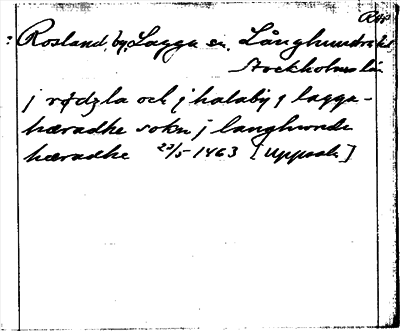 Rosland, by, Lagga sn, Långhundra hd
Stockholms län
j rødzla och j halaby j lagga-
hæradhe sokn j langhunde
hæradhe 22/5 1463 [Uppsala]